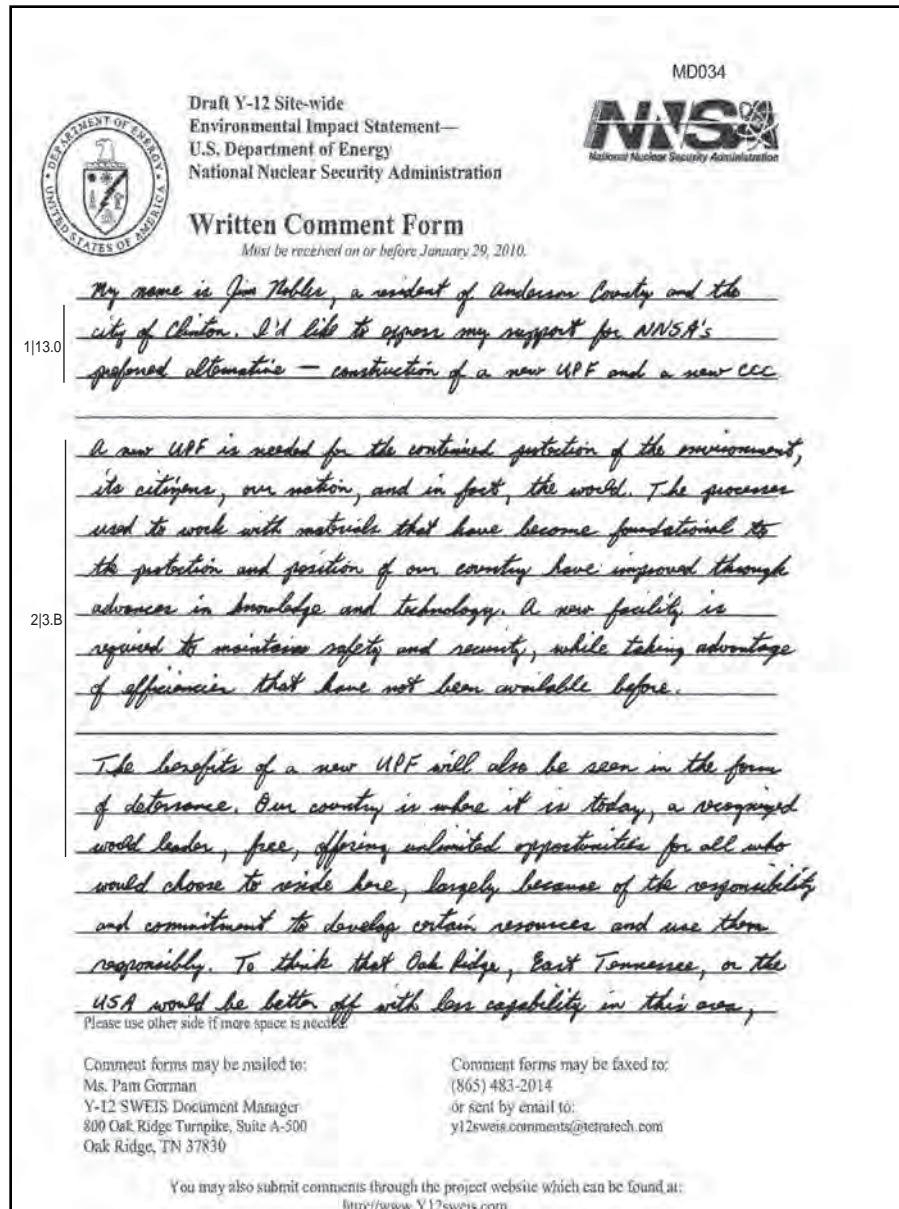 MD034
Draft Y-12 Site-wide
Environmental Impact Statement—
U.S. Department of Energy
National Nuclear Security Administration
DEPARTMENT OF ENERGY
UNITED STATES OF AMERICA
NNSA
National Nuclear Security Administration
Written Comment Form
Must be received on or before January 29, 2010.
My name is Jim Nobles, a resident of Anderson County and the
city of Clinton. I'd like to express my support for NNSA's
1|13.0
preferred alternative — construction of a new UPF and a new CCC
A new UPF is needed for the continued protection of the environment,
its citizens, our nation, and in fact, the world. The processes
used to work with materials that have become foundational to
the protection and position of our country have improved through
advances in knowledge and technology. A new facility is
2|3.B
required to maintain safety and security, while taking advantage
of efficiencies that have not been available before.
The benefits of a new UPF will also be seen in the form
of deterrance. Our country is where it is today, a recognized
world leader, free, offering unlimited opportunities for all who
would choose to reside here, largely because of the responsibility
and commitment to develop certain resources and use them
responsibly. To think that Oak Ridge, East Tennessee, or the
USA would be better off with less capability in this area,
Please use other side if more space is needed.
Comment forms may be mailed to:
Ms. Pam Gorman
Y-12 SWEIS Document Manager
800 Oak Ridge Turnpike, Suite A-500
Oak Ridge, TN 37830
Comment forms may be faxed to:
(865) 483-2014
or sent by email to:
y12sweis.comments@tetratech.com
You may also submit comments through the project website which can be found at:
http://www.Y12sweis.com